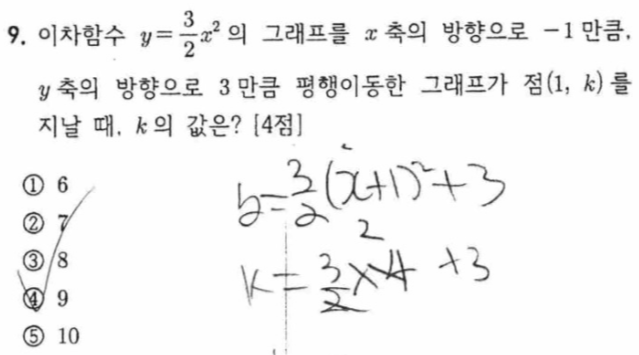 9. 이차함수 y=3/2x²의 그래프를 x축의 방향으로 -1만큼,
y축의 방향으로 3만큼 평행이동한 그래프가 점(1, k)를
지날 때, k의 값은? [4점]
① 6
② 7
③ 8
④ 9
⑤ 10
y=3/2(x+1)²+3
2
k=3/2×4+3